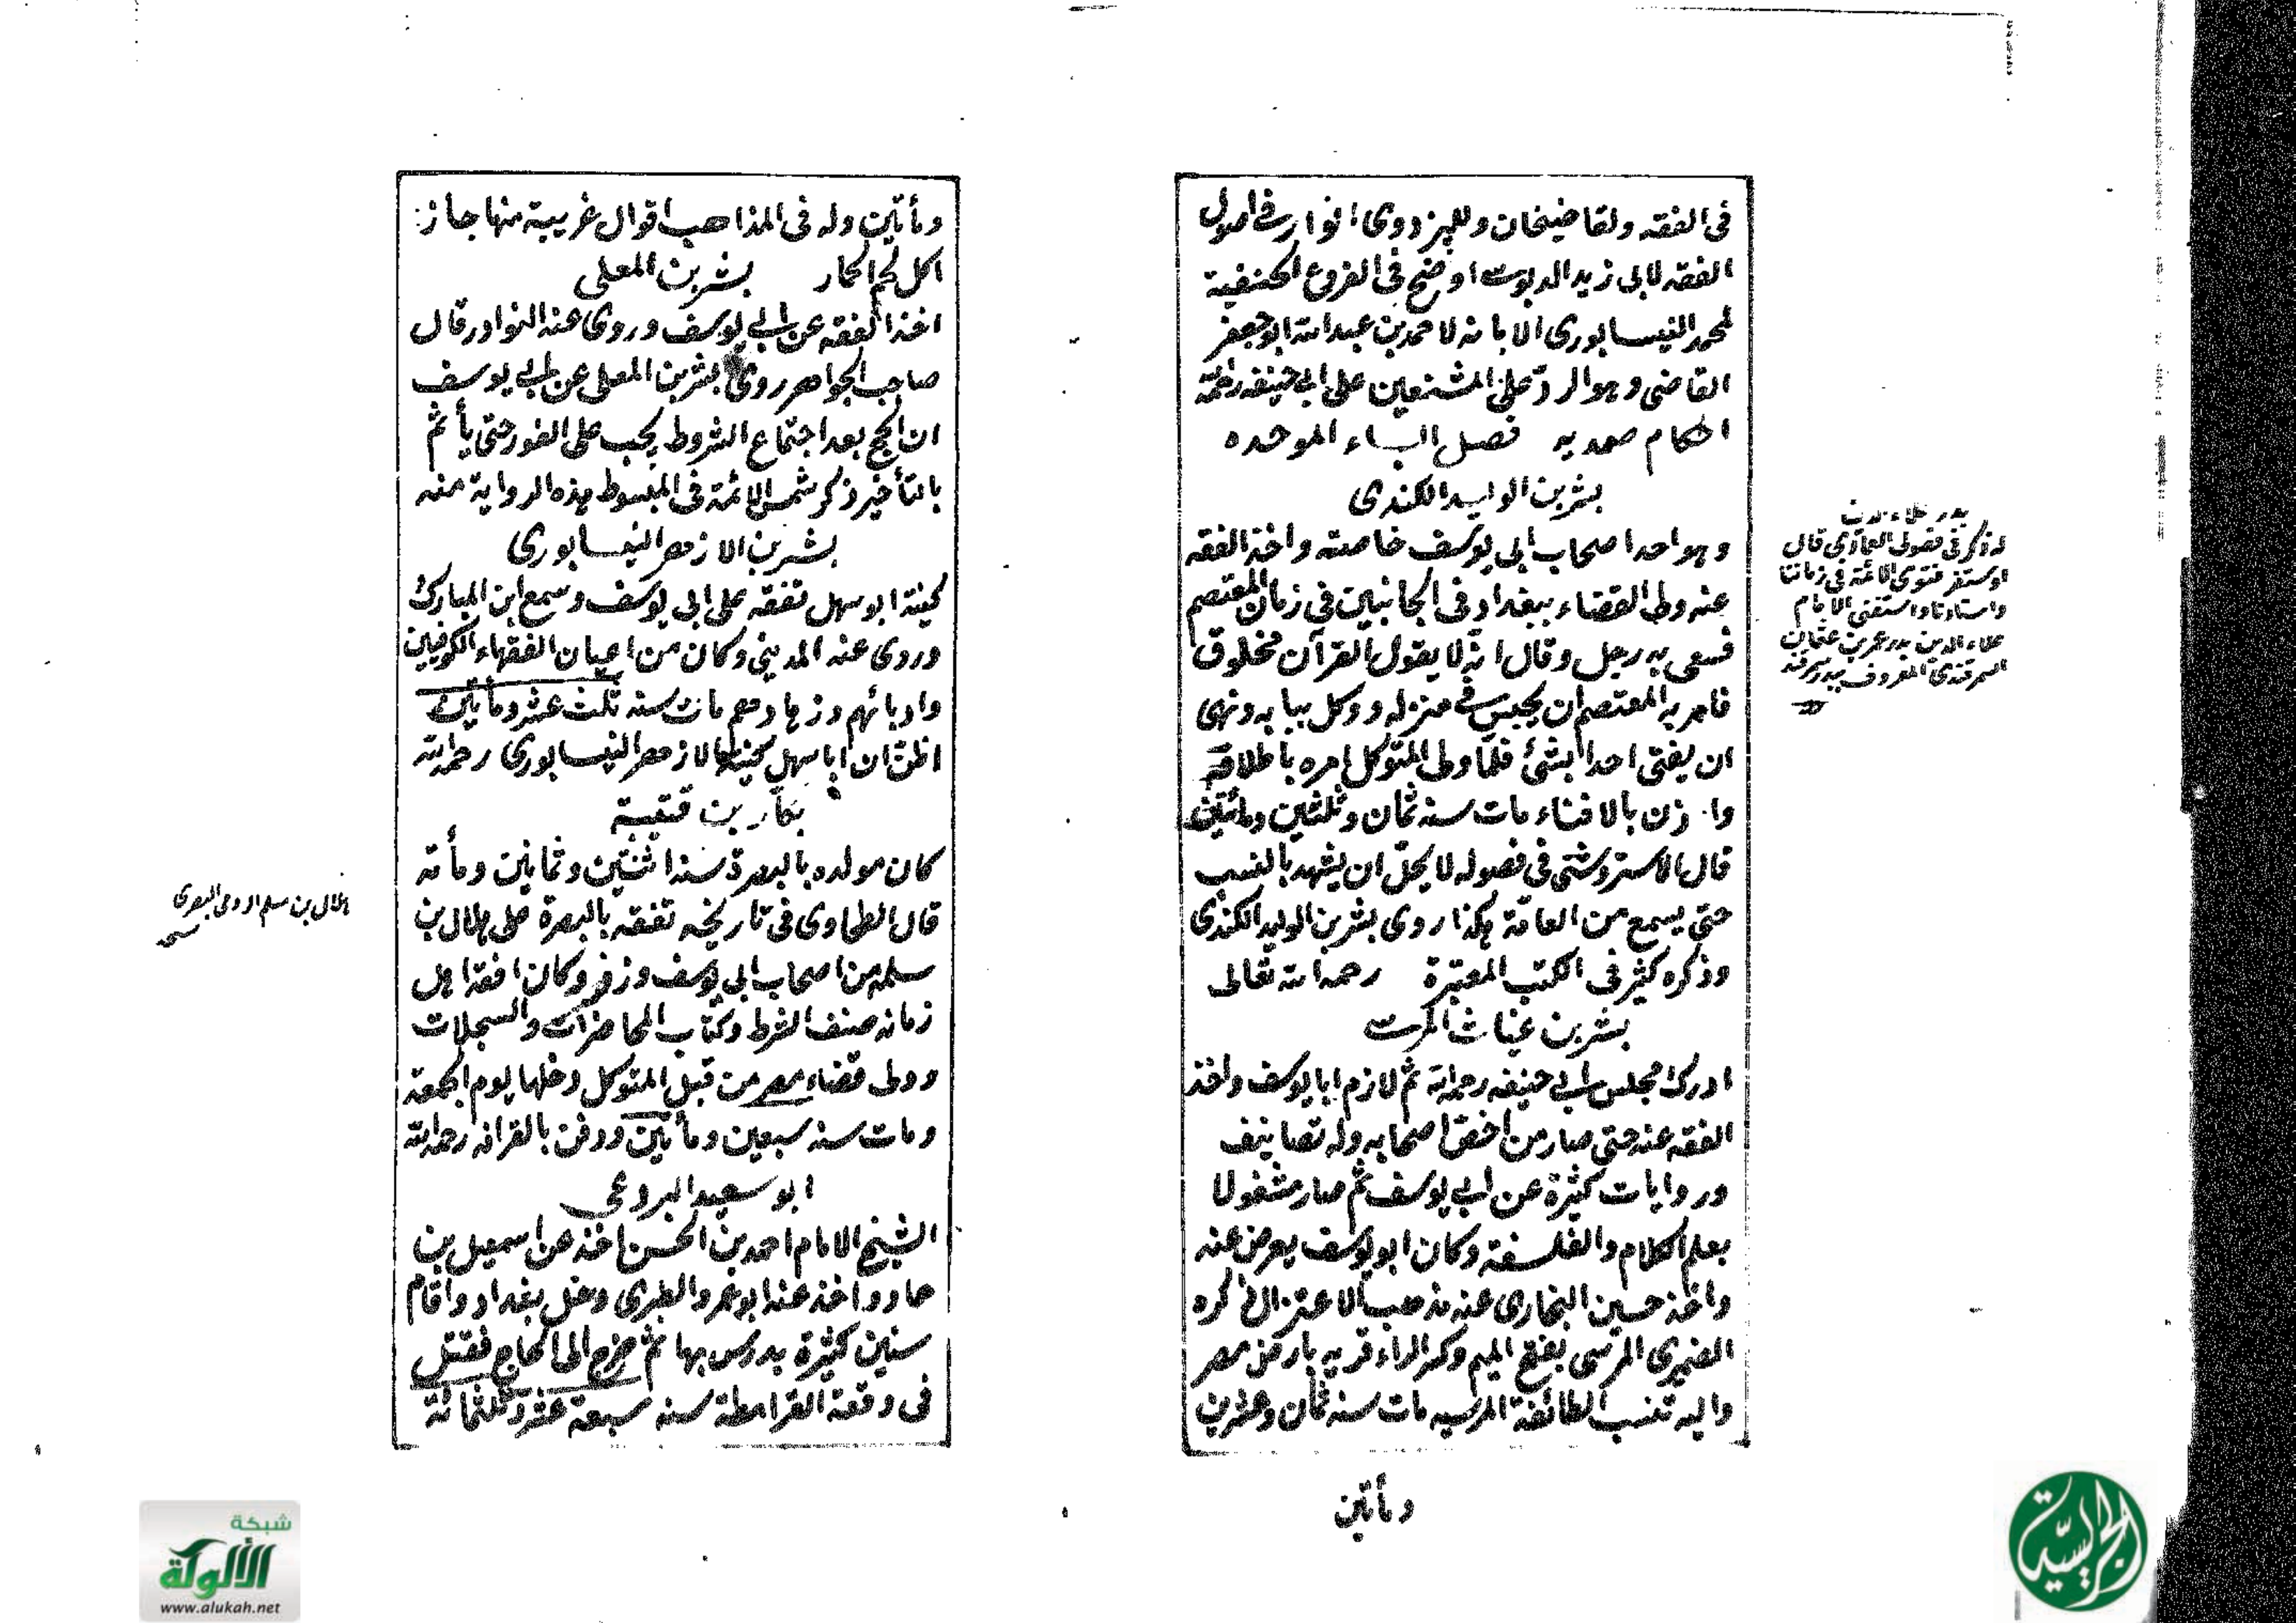 في الفقه ولقاضيخان وللبزدوى انوار في اصول
الفقه لابى زيد الدبوسى اوضح في الفروع الحنفية
لمحمد النيسابورى الابانه لاحمد بن عبدالله ابو جعفر
القاضى وهو الرد على المشنعين على ابى حنيفه رحمه الله
احكام صمديه فصل الباء الموحده
بشر بن الوليد الكندى
وهو احد اصحاب ابى يوسف خاصته واخذ الفقه
عنه وولى القضاء ببغداد في الجانبين في زمان المعتصم
فسعى به رجل وقال انه لا يقول القرآن مخلوق
فامر به المعتصم ان يحبس في منزله ووكل ببابه ونهى
ان يفتى احدا بشئ فلما ولى المتوكل امره باطلاقه
واذن بالافتاء مات سنه ثمان وثلثين ومائتين
قال الاستروشنى في فصوله لا يحل ان يشهد بالنسب
حتى يسمع من العامة هكذا روى بشر بن الوليد الكندى
وذكره كثير في الكتب المعتبرة رحمه الله تعالى
بشر بن غياث المريسى
ادرك مجلس ابى حنيفه رحمه الله ثم لازم ابا يوسف واخذ
الفقه عنه حتى صار من اخص اصحابه وله تصانيف
وروايات كثيرة عن ابى يوسف ثم صار مشغولا
بعلم الكلام والفلسفة وكان ابو يوسف يعرض عنه
واخذ حسين النجارى عنه مذهب الاعتزال ذكره
الصيمرى المرسى بفتح الميم وكسر الراء قريه بارض مصر
واليه تنسب الطائفة المرسيه مات سنه ثمان وعشرين
ومأتين
له ذكر في فصول العمادى قال
واستقر فتوى الائمة في زماننا
واستاذنا واستفتى الامام
علاء الدين بدر عمر بن عثمان
السمرقندى المعروف ببدر سمرقند
ومأتين وله في المذاهب اقوال غريبة منها جاز
اكل لحم الحمار بشر بن المعلى
اخذ الفقه عن ابى يوسف وروى عنه النوادر قال
صاحب الجواهر روى بشر بن المعلى عن ابى يوسف
ان الحج بعد اجتماع الشروط يجب على الفور حتى يأثم
بالتأخير ذكر شمس الائمة في المبسوط هذه الرواية منه
بشر بن الازهر النيسابورى
كنيته ابو سهل تفقه على ابى يوسف وسمع ابن المبارك
وروى عنه المدينى وكان من اعيان الفقهاء الكوفيين
وادبائهم وزهادهم مات سنه ثلث عشر ومأتين
اظن ان ابا سهل كنية الازهر النيسابورى رحمه الله
بكار بن قتيبة
كان مولده بالبصرة سنة اثنتين وثمانين ومأته
قال الطحاوى في تاريخه تفقه بالبصرة على هلال بن
سلم من اصحاب ابى يوسف وزفر وكان افقه اهل
زمانه صنف الشرط وكتاب المحاضرات والسجلات
وولى قضاء مصر من قبل المتوكل دخلها يوم الجمعة
ومات سنه سبعين ومأتين ودفن بالقرافه رحمه الله
ابو سعيد البردعى
الشيخ الامام احمد بن الحسن اخذ عن اسمعيل بن
حماد واخذ عنه ابو عمرو الطبرى دخل بغداد واقام
سنين كثيرة يدرس بها ثم خرج الى الحاج فقتل
في وقعة القرامطة سنه سبعة عشر وثلثمائة
هلال بن سلم البصرى
شبكة
الألوكة
www.alukah.net